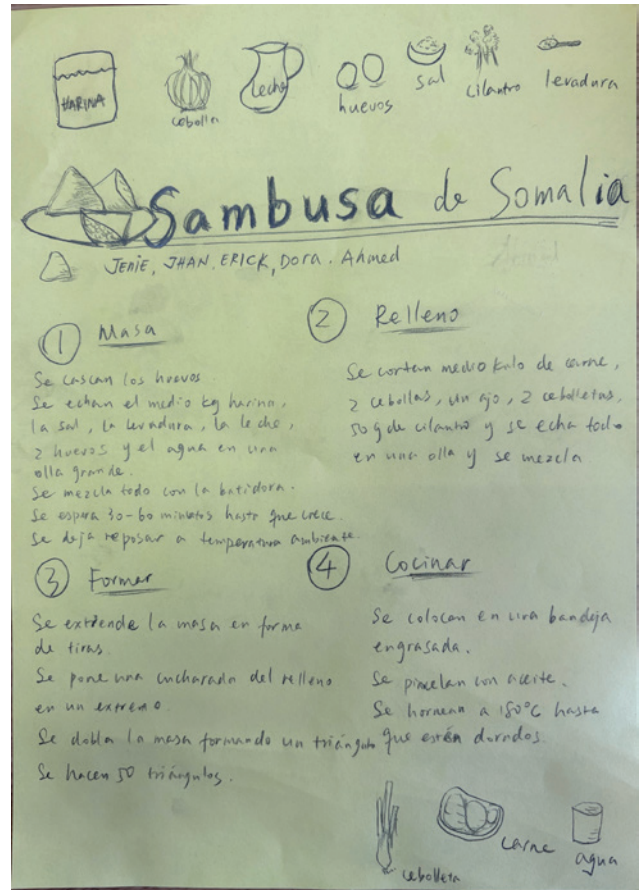 HARINA
cebolla
Leche
huevos
sal
cilantro
levadura
Sambusa de Somalia
JENIE, JHAN. ERICK, Dora. Ahmed
1 Masa
Se cascan los huevos.
Se echan el medio kg harina,
la sal, la levadura, la leche,
2 huevos y el agua en una
olla grande.
Se mezcla todo con la batidora.
Se espera 30-60 minutos hasta que crece.
Se deja reposar a temperatura ambiente.
2 Relleno
Se cortan medio kilo de carne,
2 cebollas, un ajo, 2 cebolletas,
50 g de cilantro y se echa todo
en una olla y se mezcla
3 Formar
Se extiende la masa en forma
de tiras.
Se pone una cucharada del relleno
en un extremo.
Se dobla la masa formando un triángulo
Se hacen 50 triángulos.
4 Cocinar
Se colocan en una bandeja
engrasada.
Se pincelan con aceite.
Se hornean a 180°C hasta
que estén dorados.
cebolleta
carne
agua